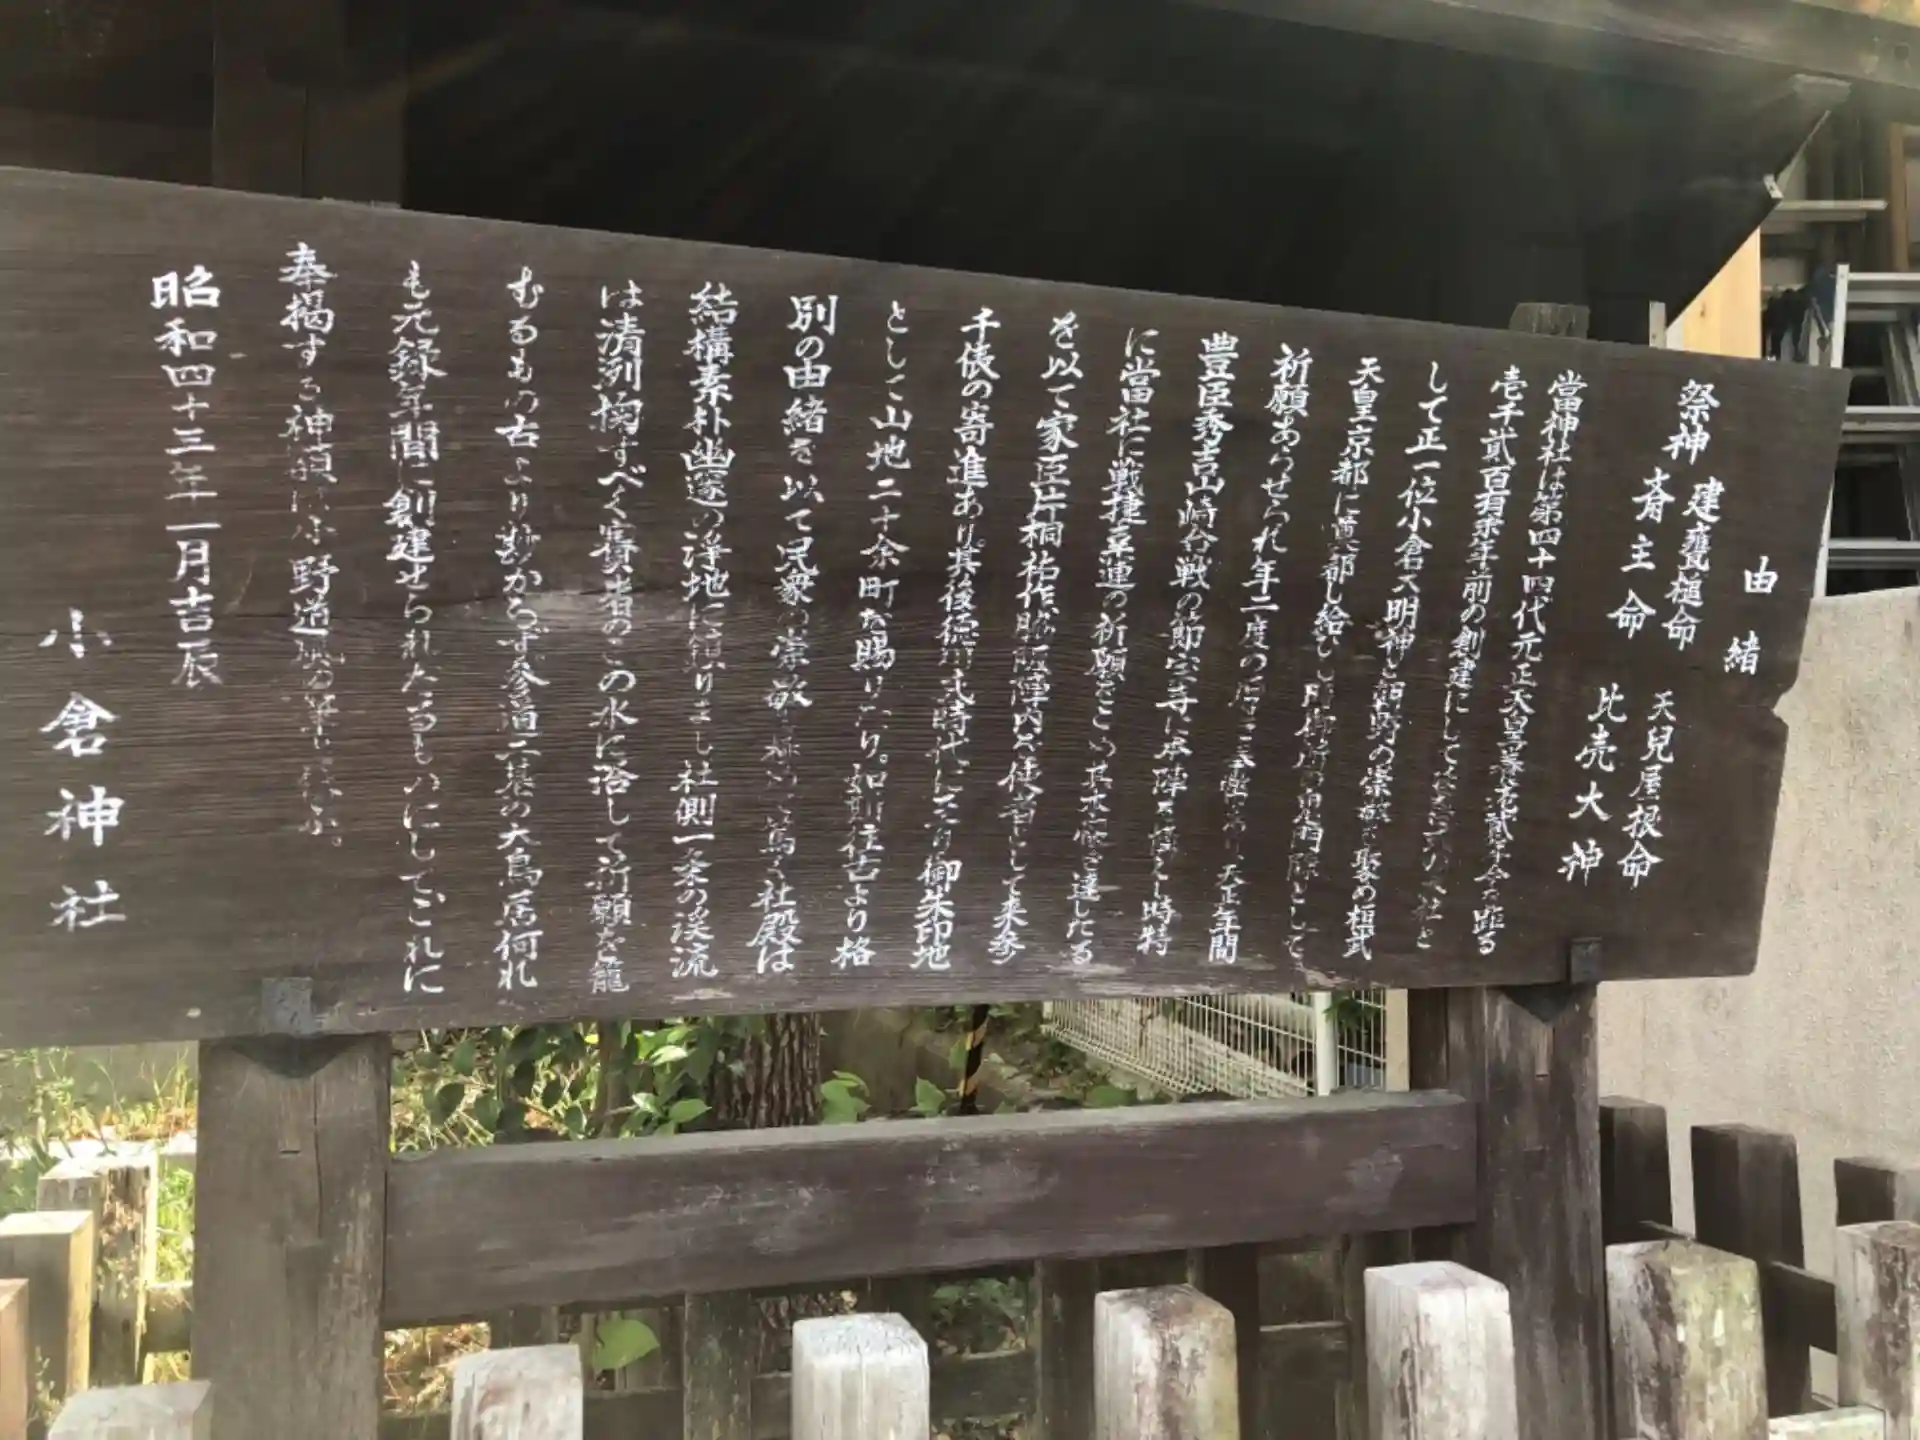 由緒
祭神 建甕槌命 斎主命 天児屋根命 比売大神
當神社は第四十四代元正天皇養老貳年今を距る
壱千貳百有余年前の創建にして
して正一位小倉大明神と朝野の崇敬を聚め桓武
天皇京都に奠都し給ひし時御所の鬼門除として
祈願あらせられ年二度の あり、天正年間
豊臣秀吉山崎合戦の節宝寺に本陣を構へし時特
に當社に戦捷 運の祈願をこめ其本懐を達したる
を以て家臣片桐祐作 陣内を使者として来参
千俵の寄進あり。其後徳川氏時代に 御朱印地
として山地二十余町を賜りたり。如斯往古より格
別の由緒を以て民衆の崇敬も極めて篤く社殿は
結構素朴幽邃の浄地に鎮りまし社側一条の渓流
は清洌掬すべく賽者のこの水に浴して祈願を籠
むるもの古より尠からず参道二基の大鳥居何れ
も元録年間に創建せられたるものにしてこれに
奉掲する神額は小野道風の筆と伝ふ。
昭和四十三年一月吉辰
小倉神社